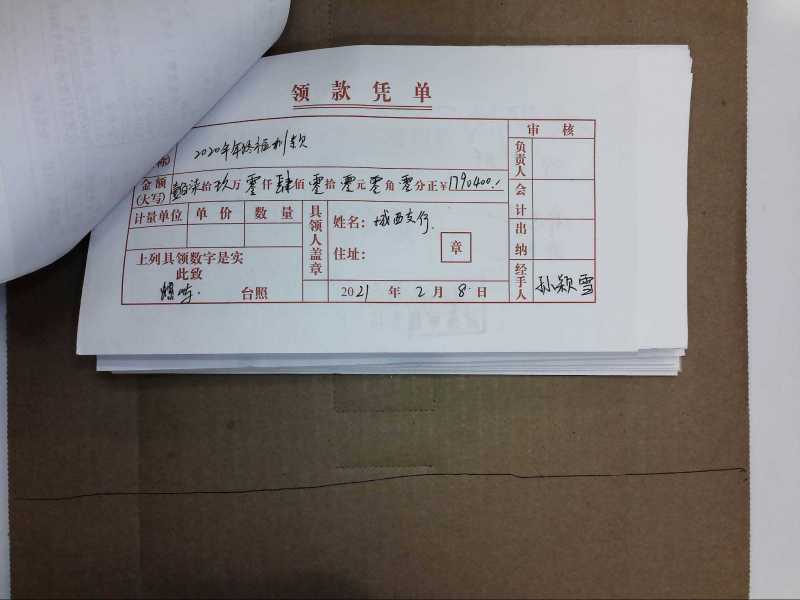 领款凭单
审核
称) 2020年年终福利款
负责人
金额(大写) 壹佰柒拾玖万零仟肆佰零拾零元零角零分正¥1790400.-
会计
计量单位 单价 数量
具领人盖章
姓名: 城西支行
住址: 章
出纳
上列具领数字是实
此致
台照
2021年2月8日
经手人 孙颖雪